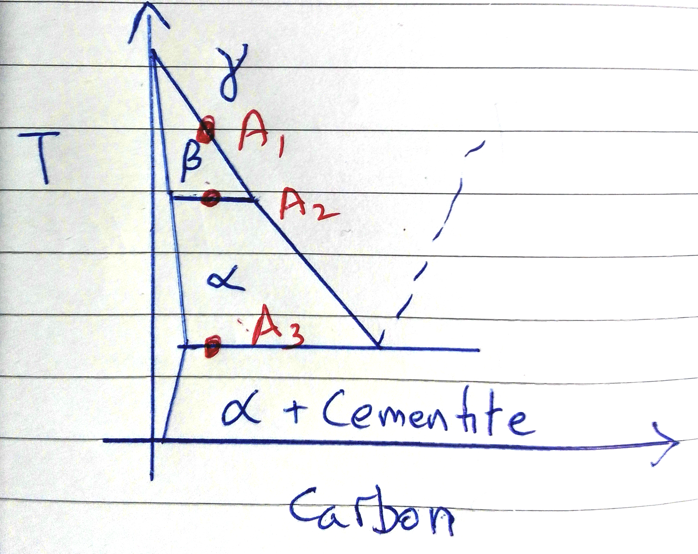 γ
A₁
T
β
A₂
α
A₃
α + Cementite
Carbon